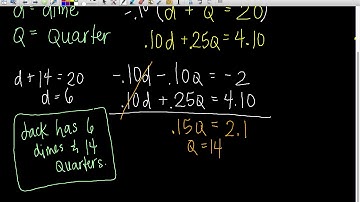 d = dime
-.10 (d + Q = 20)
Q = Quarter
.10d + .25Q = 4.10
d + 14 = 20
d = 6
-.10d - .10Q = -2
.10d + .25Q = 4.10
.15Q = 2.1
Q = 14
Jack has 6
dimes & 14
Quarters.